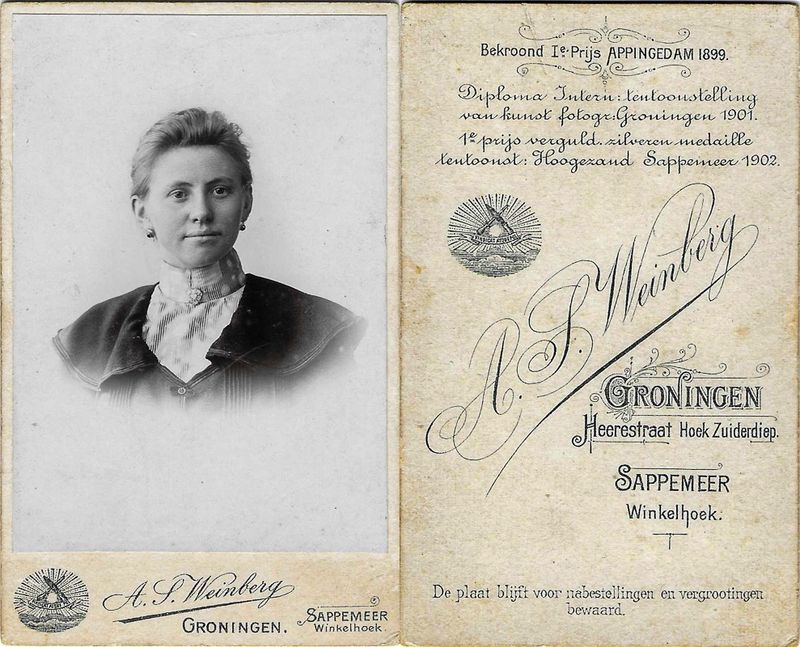 A. S. Weinberg
GRONINGEN.
SAPPEMEER
Winkelhoek.
Bekroond Ie. Prijs APPINGEDAM 1899.
Diploma Intern: tentoonstelling
van kunst fotogr: Groningen 1901.
1e prijs verguld. zilveren medaille
tentoonst: Hoogezand Sappemeer 1902.
A. S. Weinberg
GRONINGEN
Heerestraat Hoek Zuiderdiep.
SAPPEMEER
Winkelhoek.
De plaat blijft voor nabestellingen en vergrootingen
bewaard.